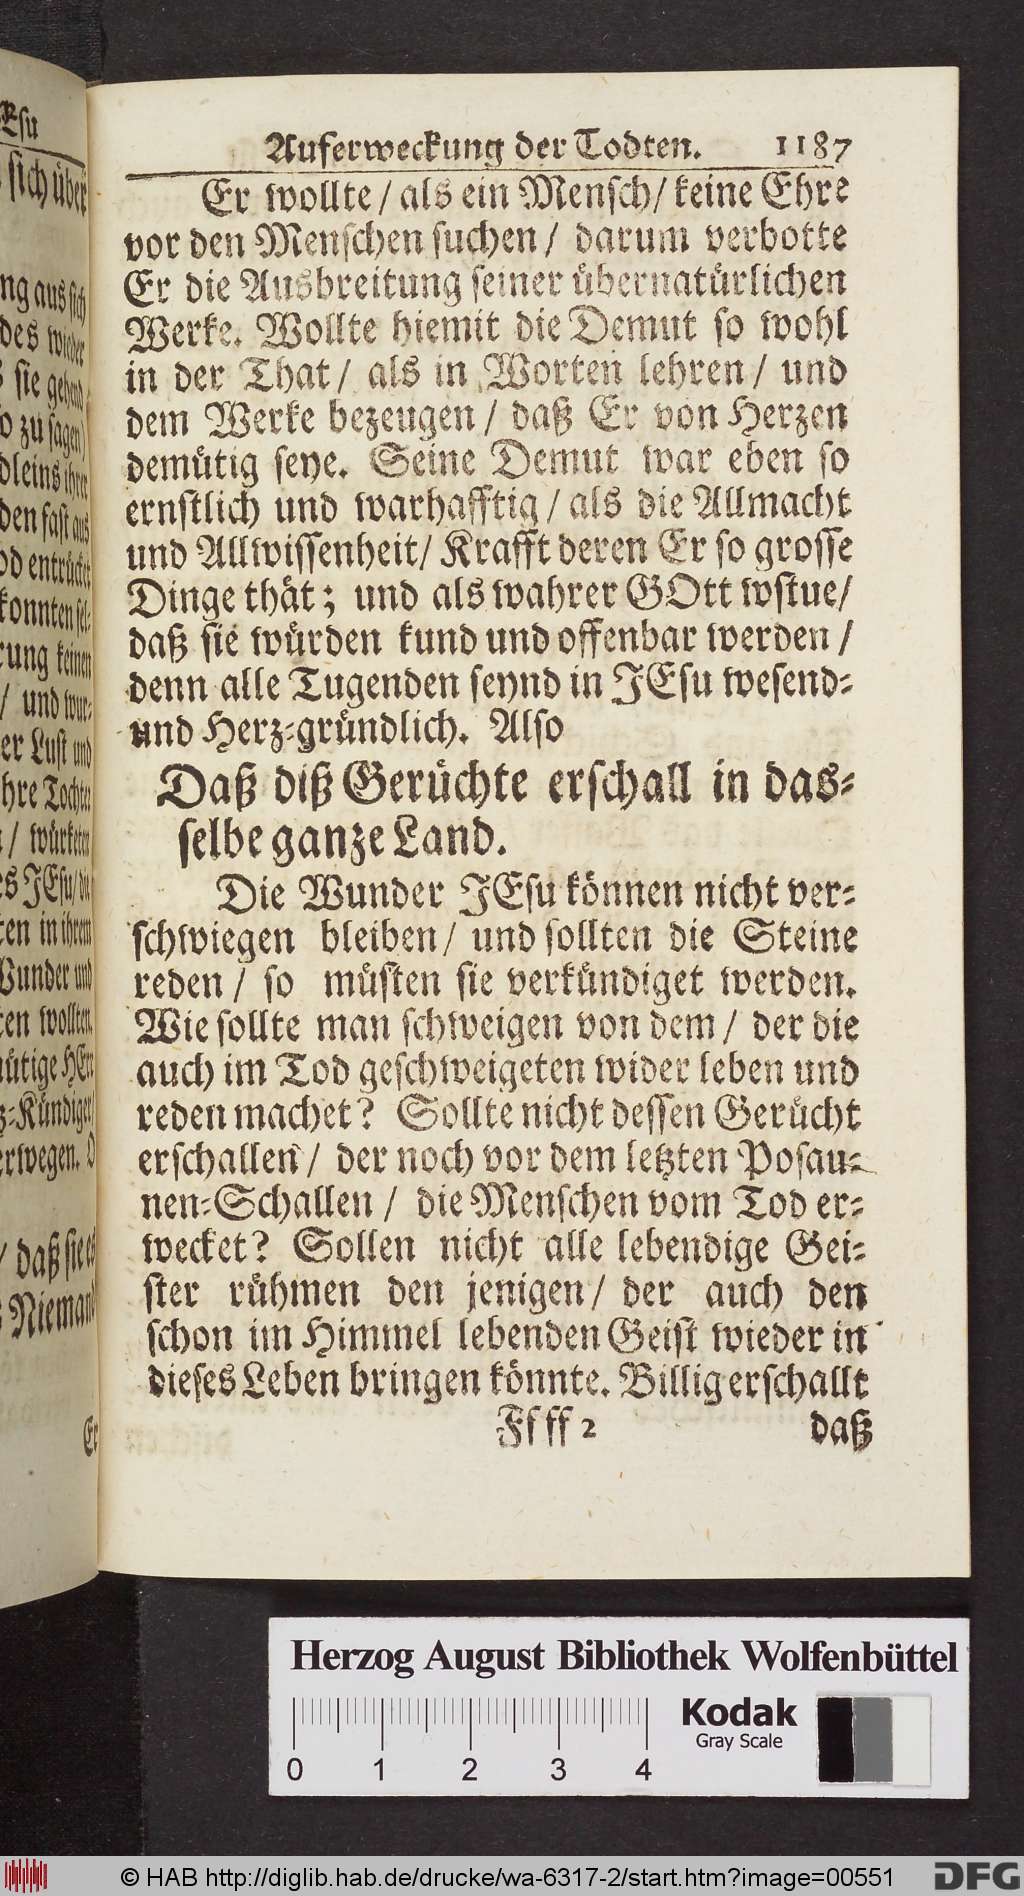 Auferweckung der Todten. 1187
Er wollte / als ein Mensch / keine Ehre
vor den Menschen suchen / darum verbotte
Er die Ausbreitung seiner übernatürlichen
Werke. Wollte hiemit die Demut so wohl
in der That / als in Worten lehren / und
dem Werke bezeugen / daß Er von Herzen
demütig seye. Seine Demut war eben so
ernstlich und warhafftig / als die Allmacht
und Allwissenheit / Krafft deren Er so grosse
Dinge thät; und als wahrer GOtt wstue /
daß sie würden kund und offenbar werden /
denn alle Tugenden seynd in JEsu wesend-
und Herz-gründlich. Also
Daß diß Gerüchte erschall in das-
selbe ganze Land.
Die Wunder JEsu können nicht ver-
schwiegen bleiben / und sollten die Steine
reden / so müsten sie verkündiget werden.
Wie sollte man schweigen von dem / der die
auch im Tod geschweigeten wider leben und
reden machet? Sollte nicht dessen Gerücht
erschallen / der noch vor dem letzten Posau-
nen-Schallen / die Menschen vom Tod er-
wecket? Sollen nicht alle lebendige Gei-
ster rühmen den jenigen / der auch den
schon im Himmel lebenden Geist wieder in
dieses Leben bringen könnte. Billig erschallt
Ffff 2 daß
Esu
sich über
ng aus sich
des wieder
sie gehend
o zu sagen)
dleins ihrer
den fast aus
od entrücket
konnten sel-
rung keinen
/ und wur-
er Lust und
hre Tochter
/ würketen
es JEsu / die
ten in ihrem
Wunder und
ten wollten.
ütige HErr
z-Kündiger
erwegen. O
/ daß sie es
Niemand
Er
Herzog August Bibliothek Wolfenbüttel
Kodak
Gray Scale
0 1 2 3 4
© HAB http://diglib.hab.de/drucke/wa-6317-2/start.htm?image=00551
DFG